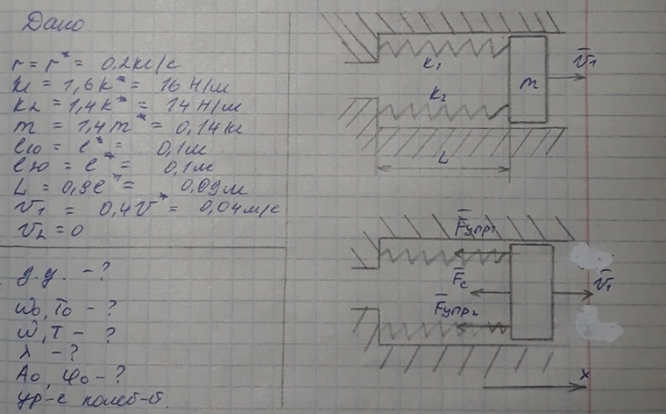 Дано
r = r* = 0.2кг/с
k1 = 1,6k* = 16 Н/м
k2 = 1,4k* = 14 Н/м
m = 1,4m* = 0,14кг
l10 = l* = 0,1м
l20 = l* = 0,1м
L = 0,9l* = 0,09м
v1 = 0,4v* = 0,04м/с
v2 = 0
д.у. - ?
ω0, T0 - ?
ω, T - ?
λ - ?
A0, φ0 - ?
ур-е колеб-й.
k1
k2
m
v1
L
Fупр1
Fc
Fупр2
v1
x